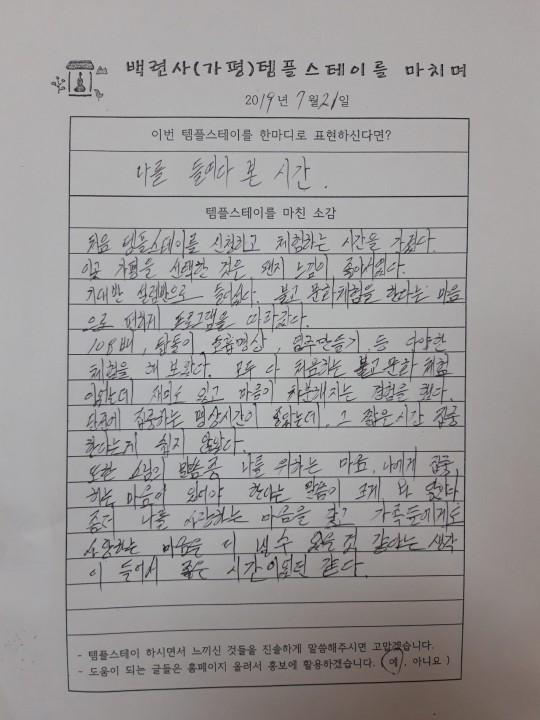 백련사(가평)템플스테이를 마치며
2019년 7월21일
이번 템플스테이를 한마디로 표현하신다면?
나를 들여다 본 시간.
템플스테이를 마친 소감
처음 템플스테이를 신청하고 체험하는 시간을 가졌다.
이곳 가평을 선택한 것은 왠지 느낌이 좋아서였다.
기대반 설렘반으로 들어섰다. 불교 문화체험을 한다는 마음
으로 편하게 프로그램을 따라갔다.
108배, 탑돌이 호흡명상, 염주만들기 등 다양한
체험을 해 보았다. 모두 다 처음하는 불교 문화 체험
이었는데 재미도 있고 마음이 차분해지는 경험을 했다.
집중하는 명상시간이 있었는데, 그 짧은시간 집중
한다는게 쉽지 않았다.
또한 스님의 말씀중 나를 위하는 마음, 나에게 집중
하는 마음이 있어야 한다는 말씀이 크게 와 닿았다
좀더 나를 사랑하는 마음을 갖고 가족들에게도
사랑하는 마음을 더 실수 있을 것 같다는 생각
이 들어서 좋은 시간이었던 같다.
- 템플스테이 하시면서 느끼신 것들을 진솔하게 말씀해주시면 고맙겠습니다.
- 도움이 되는 글들은 홈페이지 올려서 홍보에 활용하겠습니다. (예, 아니요)